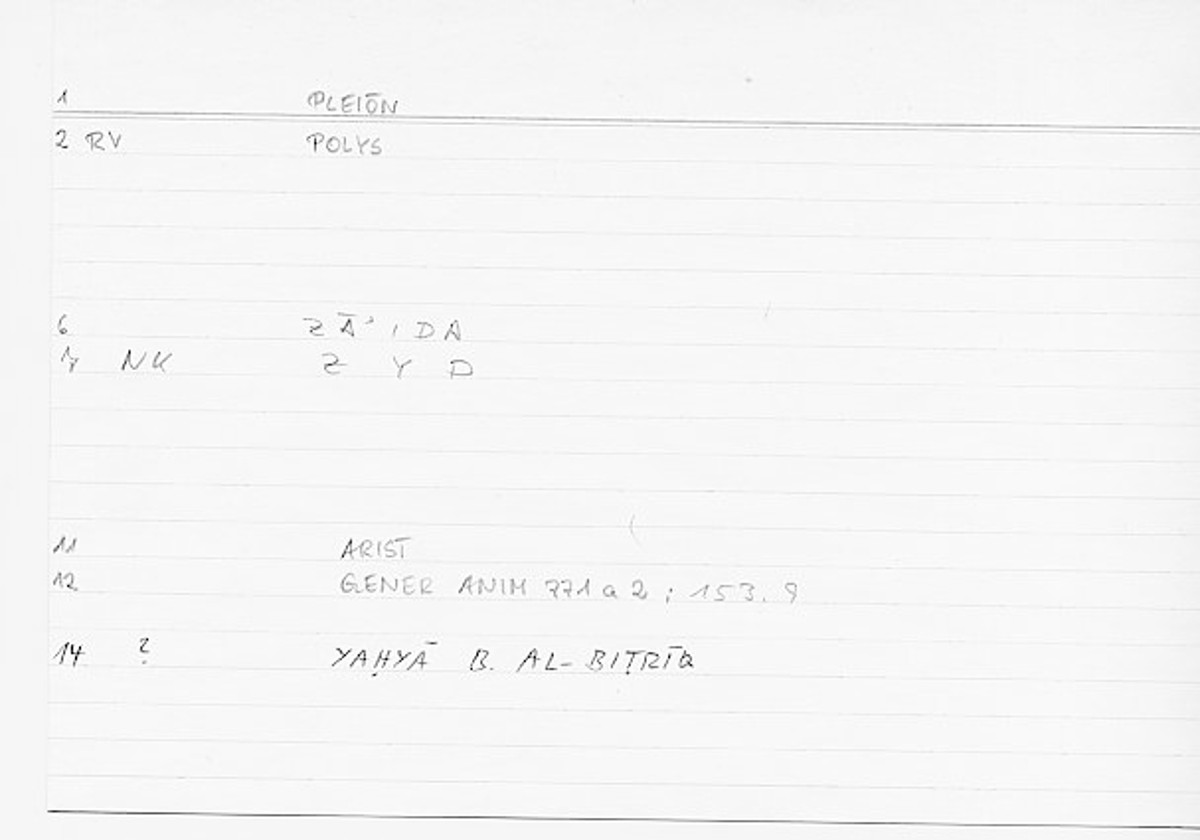 1 PLEIŌN
2 RV POLYS
6 ZĀ'IDA
7 NK Z Y D
11 ARIST
12 GENER ANIM 771 a 2 ; 153.9
14 ? YAḤYĀ B. AL-BIṬRĪQ